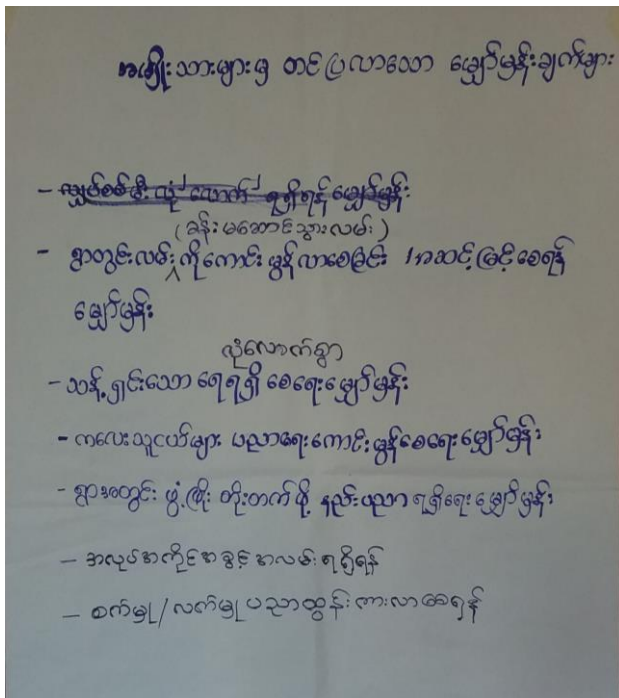 အမျိုးသားများမှ တင်ပြလာသော မျှော်မှန်းချက်များ
- လျှပ်စစ်မီး လုံ လောက် ရရှိရန် မျှော်မှန်း
(ခန်းမဆောင်သွားလမ်း)
- ရွာတွင်းလမ်း ကိုကောင်းမွန်လာစေခြင်း /အဆင့်မြှင့်စေရန်
မျှော်မှန်း
လုံလောက်စွာ
- သန့်ရှင်းသော ရေရရှိစေရေးမျှော်မှန်း
- ကလေးသူငယ်များ ပညာရေးကောင်းမွန်စေရေးမျှော်မှန်း
- ရွာအတွင်း ဖွံ့ဖြိုးတိုးတက်ဖို့ နည်းပညာရရှိရေးမျှော်မှန်း
- အလုပ်အကိုင်အခွင့်အလမ်းရရှိရန်
- စက်မှု/လက်မှုပညာထွန်းကားလာစေရန်